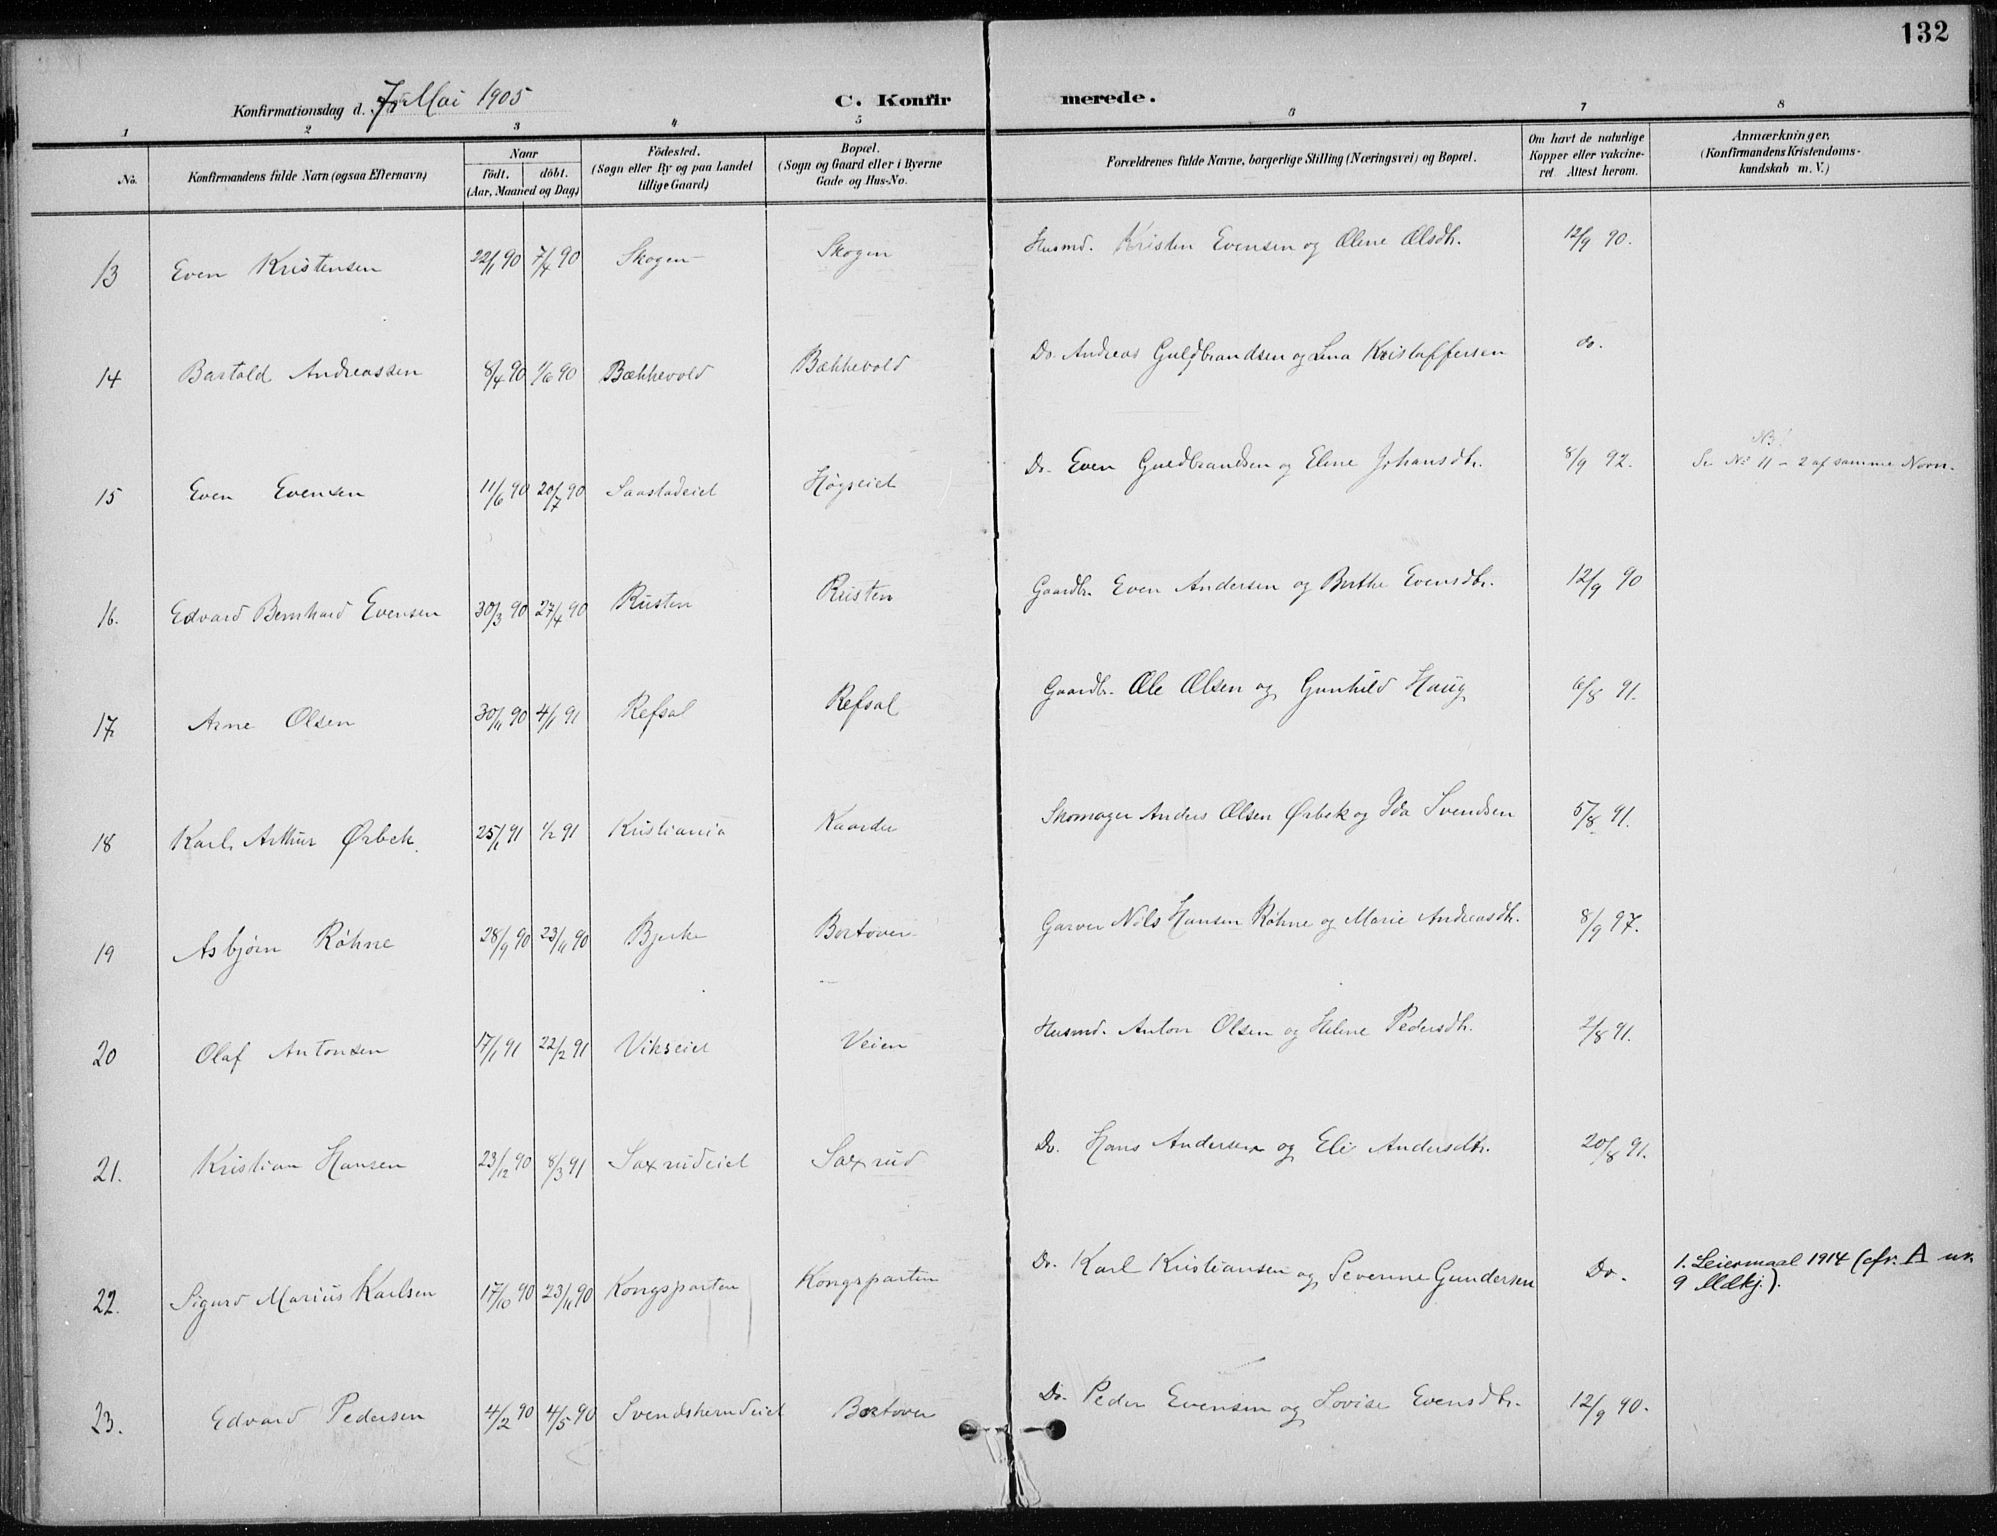 132
Konfirmationsdag d. 7 Mai 1905
C. Konfirmerede.
1 2 3 4 5 6 7 8
No.
Konfirmandens fulde Navn (ogsaa Efternavn)
Naar
födt. döbt.
(Aar, Maaned og Dag)
Födested.
(Sogn eller By og paa Landet
tillige Gaard)
Bopæl.
(Sogn og Gaard eller i Byerne
Gade og Hus-No.
Forældrenes fulde Navne, borgerlige Stilling (Næringsvei) og Bopæl.
Om havt de naturlige
Kopper eller vakcine-
ret. Attest herom.
Anmærkninger.
(Konfirmandens Kristendoms-
kundskab m. V.)
13 Even Kristensen 22/1 90 7/4 90 Skogen Skogen Husmd. Kristen Evensen og Olene Olsdtr. 12/9 90.
14 Bartold Andreassen 8/4 90 1/6 90 Bækkevold Bækkevold Do. Andreas Guldbrandsen og Lina Kristoffersen do.
NB!
15 Even Evensen 11/6 90 20/7 90 Saastadeiet Høgseiet Do. Even Guldbrandsen og Eline Johansdtr. 8/9 92. Se No 11 - 2 af samme Navn.
16. Edvard Bernhard Evensen 30/3 90 27/4 90 Rusten Rusten Gaardbr. Even Andersen og Berthe Evensdtr. 12/9 90
17. Arne Olsen 30/11 90 4/1 91 Refsal Refsal Gaardbr. Ole Olsen og Gunhild Haug 6/8 91.
18 Karl Arthur Ørbek 25/1 91 1/2 91 Kristiania Kaarder Skomager Anders Olsen Ørbek og Ida Svendsen 5/8 91.
19 Asbjørn Røhne 28/9 90 23/11 90 Bjerke Bortover Garver Nils Hansen Røhne og Marie Andreasdtr. 8/9 97.
20 Olaf Antonsen 17/1 91 22/2 91 Vikseiet Veien Husmd. Anton Olsen og Helene Pedersdtr. 2/8 91.
21. Kristian Hansen 23/12 90 8/3 91 Saxrudeiet Saxrud Do. Hans Andersen og Eli Andersdtr. 20/8 91.
22. Sigurd Marius Karlsen 17/10 90 23/11 90 Kongsparten Kongsparten Do. Karl Kristiansen og Severine Gundersen Do. 1. Leiermaal 1914 (cfr. A nr.
9 Mdkj.).
23. Edvard Pedersen 4/2 90 4/5 90 Svendskerudeiet Bortover Do. Peder Evensen og Lovise Evensdtr. 12/9 90.